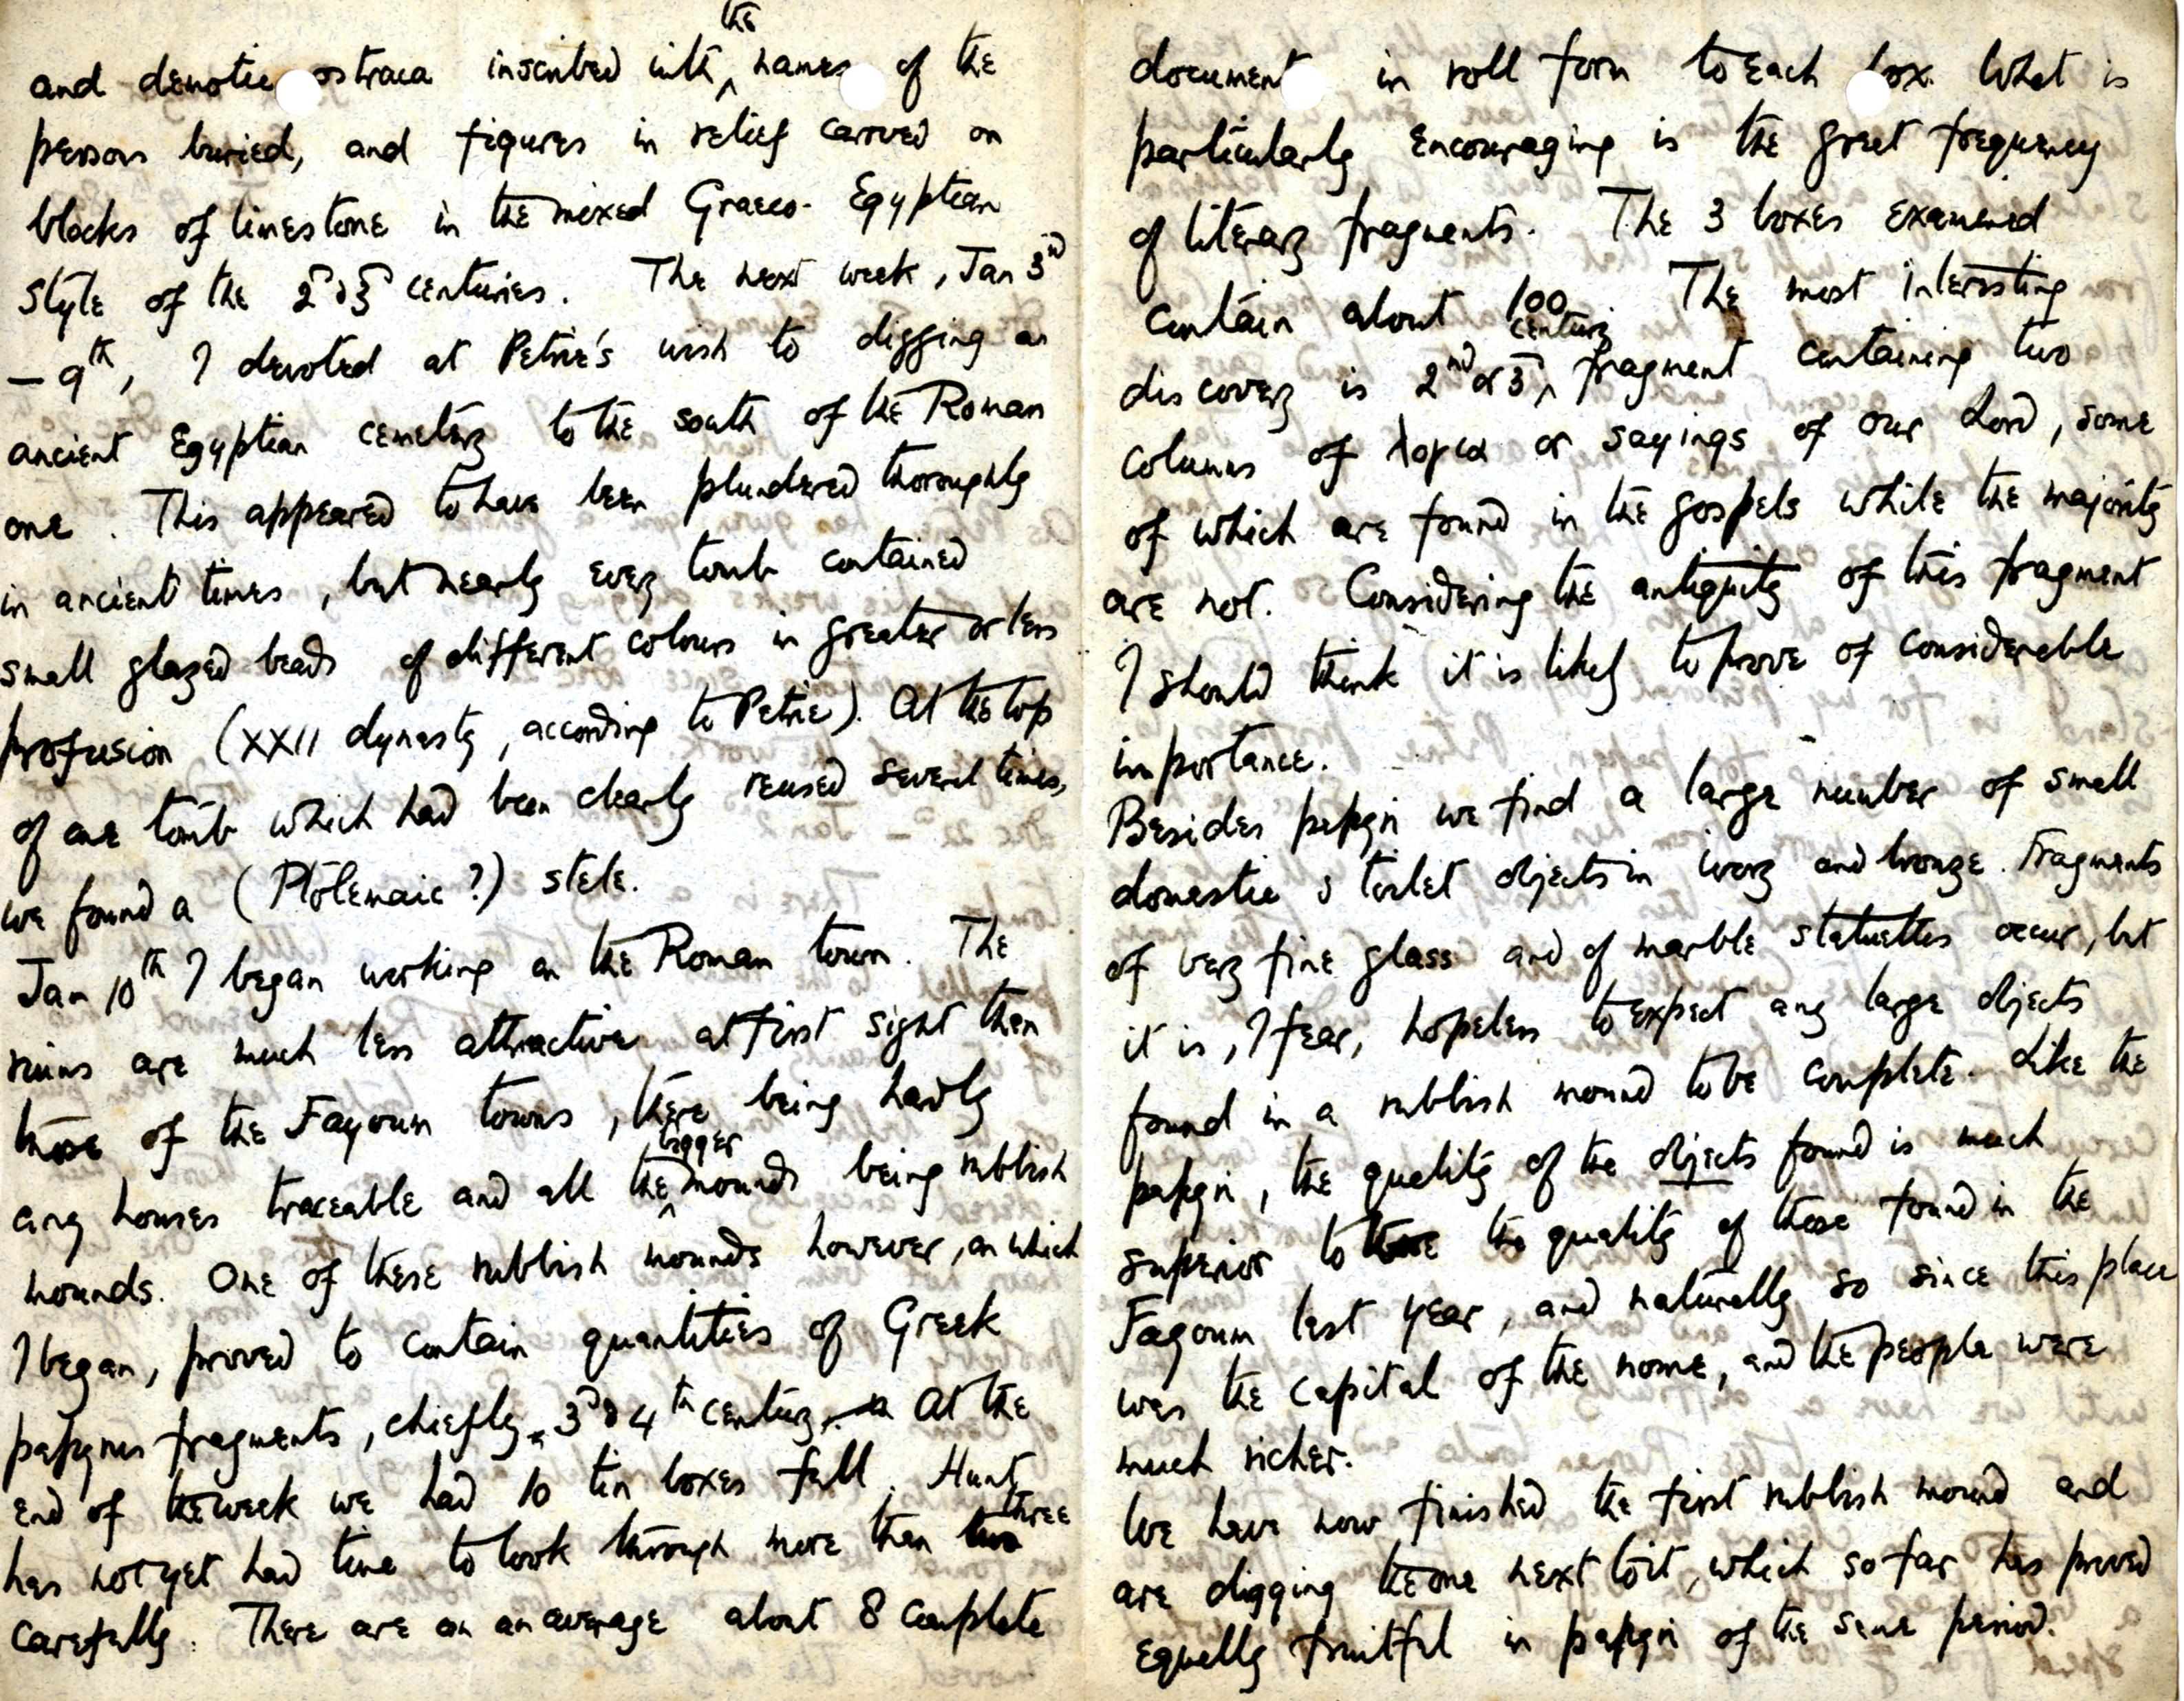 and demotic ostraca inscribed with the names of the
persons buried, and figures in relief carved on
blocks of limestone in the mixed Graeco-Egyptian
style of the 2nd & 3rd centuries. The next week, Jan 3rd
– 9th, I devoted at Petrie's wish to digging an
ancient Egyptian cemetery to the south of the Roman
one. This appeared to have been plundered thoroughly
in ancient times, but nearly every tomb contained
small glazed beads of different colours in greater or less
profusion (XXII dynasty, according to Petrie). At the top
of one tomb which had been clearly reused several times,
we found a (Ptolemaic?) stele.
Jan 10th I began working on the Roman town. The
ruins are much less attractive at first sight than
those of the Fayoum towns, there being hardly
any houses traceable and all the bigger mounds being rubbish
mounds. One of these rubbish mounds however, on which
I began, proved to contain quantities of Greek
papyrus fragments, chiefly 3rd & 4th century. At the
end of the week we had 10 tin boxes full. Hunt
has not yet had time to look through more than two three
carefully. There are on an average about 8 complete
documents in roll form to each box. What is
particularly encouraging is the great frequency
of literary fragments. The 3 boxes examined
contain about 100. The most interesting
discovery is 2nd or 3rd century fragment containing two
columns of λογια or sayings of our Lord, some
of which are found in the gospels while the majority
are not. Considering the antiquity of this fragment
I should think it is likely to prove of considerable
importance.
Besides papyri we find a large number of small
domestic & toilet objects in ivory and bronze. Fragments
of very fine glass and of marble statuettes occur, but
it is, I fear, hopeless to expect any large objects
found in a rubbish mound to be complete. Like the
papyri, the quality of the objects found is much
superior to the quality of those found in the
Fayoum last year, and naturally so since this place
was the capital of the nome, and the people were
much richer.
We have now finished the first rubbish mound and
are digging the one next to it, which so far has proved
equally fruitful in papyri of the same period.